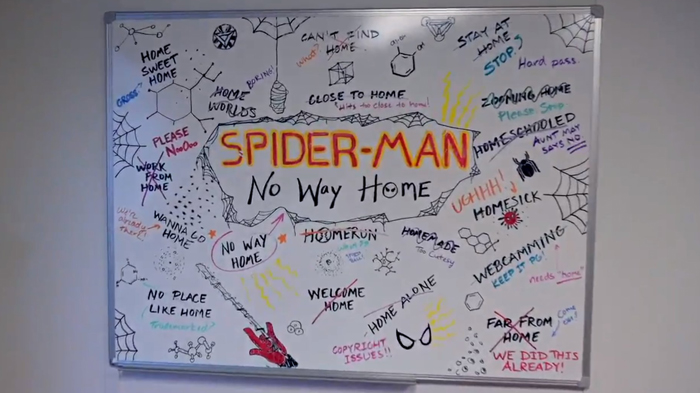 HOME
SWEET
HOME
GROSS!
BORING!
HOME
WORLDS
CAN'T FIND
HOME
WHAT?
CLOSE TO HOME
Hits to close to home!
STAY AT
HOME
STOP,
Hard pass
ZOOMING HOME
Please Stop
HOMESCHOOLED
AUNT MAY
SAYS NO
PLEASE
NoOoo
WORK
FROM
HOME
SPIDER-MAN
No Way Home
UGHHH!
HOMESICK
We're
already
there!
WANNA GO
HOME
NO WAY
HOME
HOOMERUN
HOMEMADE
Too Cutesy
WEBCAMMING
KEEP IT PG!
needs "home"
NO PLACE
LIKE HOME
Trademarked?
WELCOME
HOME
HOME ALONE
COPYRIGHT
ISSUES!!
FAR FROM
HOME
Come on!
WE DID THIS
ALREADY!